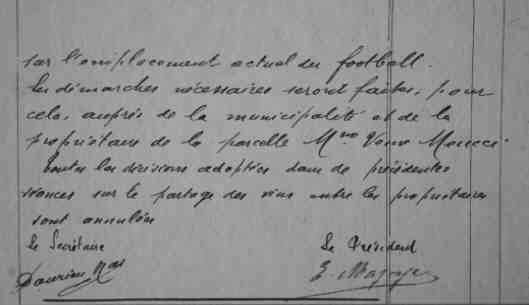 sur l'emplacement actuel du football.
Les démarches nécessaires seront faites, pour
cela, auprès de la municipalité et de la
propriétaire de la parcelle Mme Veuve
Toutes les décisions adoptées dans de précédentes
séances sur le partage des vins entre les propriétaires
sont annulées
Le Secrétaire Le Président